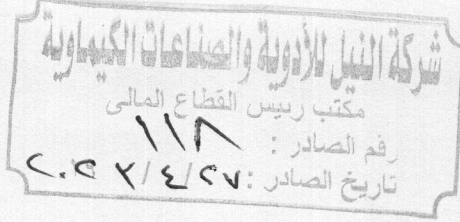 شركة النيل للأدوية والصناعات الكيماوية
مكتب رئيس القطاع المالى
رقم الصادر : ١١٨
تاريخ الصادر : ٢٧/٤/٢٠٢٣